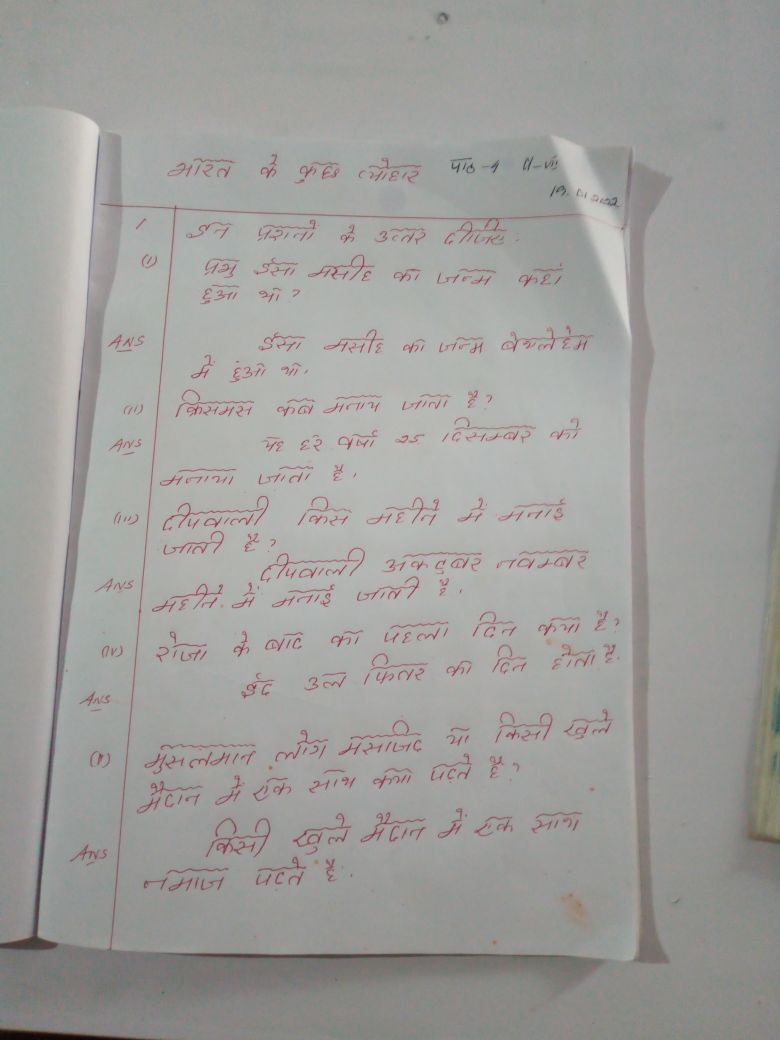 भारत के कुछ त्योहार पाठ-4 VI-VII
19.01.2022
1 इन प्रशनो के उत्तर दीजिए.
(i) प्रभु ईसा मसीह का जन्म कहां
हुआ था?
ANS ईसा मसीह का जन्म बेथलेहेम
में हुआ था.
(ii) किसमस कब मनाय जाता है?
ANS यह हर वर्षा 25 दिसम्बर को
मनाया जाता है.
(iii) दीपवाली किस महीने में मनाई
जाती है?
ANS दीपवाली अकटुबर नवम्बर
महीने में मनाई जाती है.
(iv) रोजा के बाद का पहला दिन क्या है?
ANS ईद उल फितर का दिन होता है.
(v) मुसलमान लोग मसजिद या किसी खुले
मैदान में एक साथ क्या पढ़ते है?
ANS किसी खुले मैदान में एक साथ
नमाज पढ़ते है.